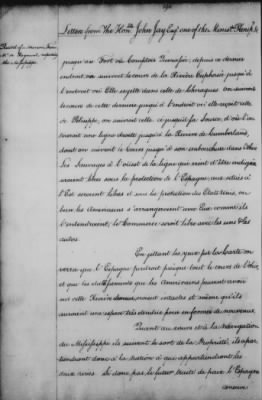 Letters from The Hon.ble John Jay Esq.r one of the Minist.
jusqu'au Fort ou Comptoir Toulouse, depuis ce dernier
endroit, on suivroit le cours de la Rivière Euphasée jusqu'à
l'endroit où Elle se jette dans celle de Cheraquis. On suivroit
le cours de cette dernière jusqu'à l'endroit où elle reçoit celle
de Pelisippi, on suivroit celle ci jusqu'à sa Source, d'où l'on
tireroit une ligne droite jusqu'à la Rivière de Cumberland,
dont on suivroit le Cours jusqu'à son embouchure dans l'Ohio
Les Sauvages à l'ouest de la ligne qui vient d'être indiquée
seroient libres sous la protection de l'Espagne, ceux situés à
l'Est seroient libres et sous la protection des Etats Unis, ou
bien les Américains s'arrangeront avec Eux comme ils
l'entendront, le Commerce seroit libre avec les uns & les
autres
En jettant les yeux sur la Carte on
verra que l'Espagne perdroit presque tout le cours de l'Ohio,
et que les établissemens que les Américains peuvent avoir
sur cette Rivière demeureroient intactes et même qu'ils
auroient un espace très étendu pour en former de nouveaux.
Quant au cours et à la Navigation
du Mississippi ils suivent le sort de la Propriété, ils appar
tiendront donc à la Nation à qui appartiendront les
deux rives. Si donc par le futur traité de paix l'Espagne
conserve